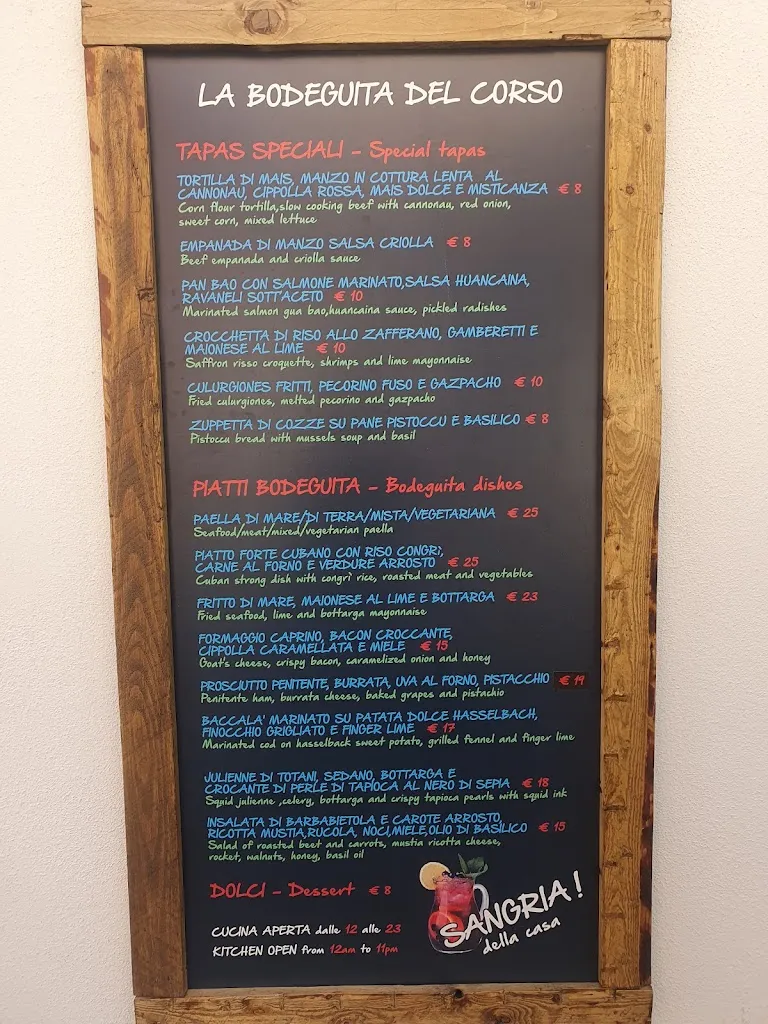 LA BODEGUITA DEL CORSO
TAPAS SPECIALI - Special tapas
TORTILLA DI MAIS, MANZO IN COTTURA LENTA AL
CANNONAU, CIPPOLLA ROSSA, MAIS DOLCE E MISTICANZA € 8
Corn flour tortilla,slow cooking beef with cannonau, red onion,
sweet corn, mixed lettuce
EMPANADA DI MANZO SALSA CRIOLLA € 8
Beef empanada and criolla sauce
PAN BAO CON SALMONE MARINATO,SALSA HUANCAINA,
RAVANELI SOTT'ACETO € 10
Marinated salmon gua bao,huancaina sauce, pickled radishes
CROCCHETTA DI RISO ALLO ZAFFERANO, GAMBERETTI E
MAIONESE AL LIME € 10
Saffron risso croquette, shrimps and lime mayonnaise
CULURGIONES FRITTI, PECORINO FUSO E GAZPACHO € 10
Fried culurgiones, melted pecorino and gazpacho
ZUPPETTA DI COZZE SU PANE PISTOCCU E BASILICO € 8
Pistoccu bread with mussels soup and basil
PIATTI BODEGUITA - Bodeguita dishes
PAELLA DI MARE/DI TERRA/MISTA/VEGETARIANA € 25
Seafood/meat/mixed/vegetarian paella
PIATTO FORTE CUBANO CON RISO CONGRÌ,
CARNE AL FORNO E VERDURE ARROSTO € 25
Cuban strong dish with congrì rice, roasted meat and vegetables
FRITTO DI MARE, MAIONESE AL LIME E BOTTARGA € 23
Fried seafood, lime and bottarga mayonnaise
FORMAGGIO CAPRINO, BACON CROCCANTE,
CIPPOLLA CARAMELLATA E MIELE € 15
Goat's cheese, crispy bacon, caramelized onion and honey
PROSCIUTTO PENITENTE, BURRATA, UVA AL FORNO, PISTACCHIO € 19
Penitente ham, burrata cheese, baked grapes and pistachio
BACCALA' MARINATO SU PATATA DOLCE HASSELBACH,
FINOCCHIO GRIGLIATO E FINGER LIME € 17
Marinated cod on hasselback sweet potato, grilled fennel and finger lime
JULIENNE DI TOTANI, SEDANO, BOTTARGA E
CROCANTE DI PERLE DI TAPIOCA AL NERO DI SEPIA € 18
Squid julienne ,celery, bottarga and crispy tapioca pearls with squid ink
INSALATA DI BARBABIETOLA E CAROTE ARROSTO,
RICOTTA MUSTIA,RUCOLA, NOCI,MIELE,OLIO DI BASILICO € 15
Salad of roasted beet and carrots, mustia ricotta cheese,
rocket, walnuts, honey, basil oil
DOLCI - Dessert € 8
CUCINA APERTA dalle 12 alle 23
KITCHEN OPEN from 12am to 11pm
SANGRIA!
della casa